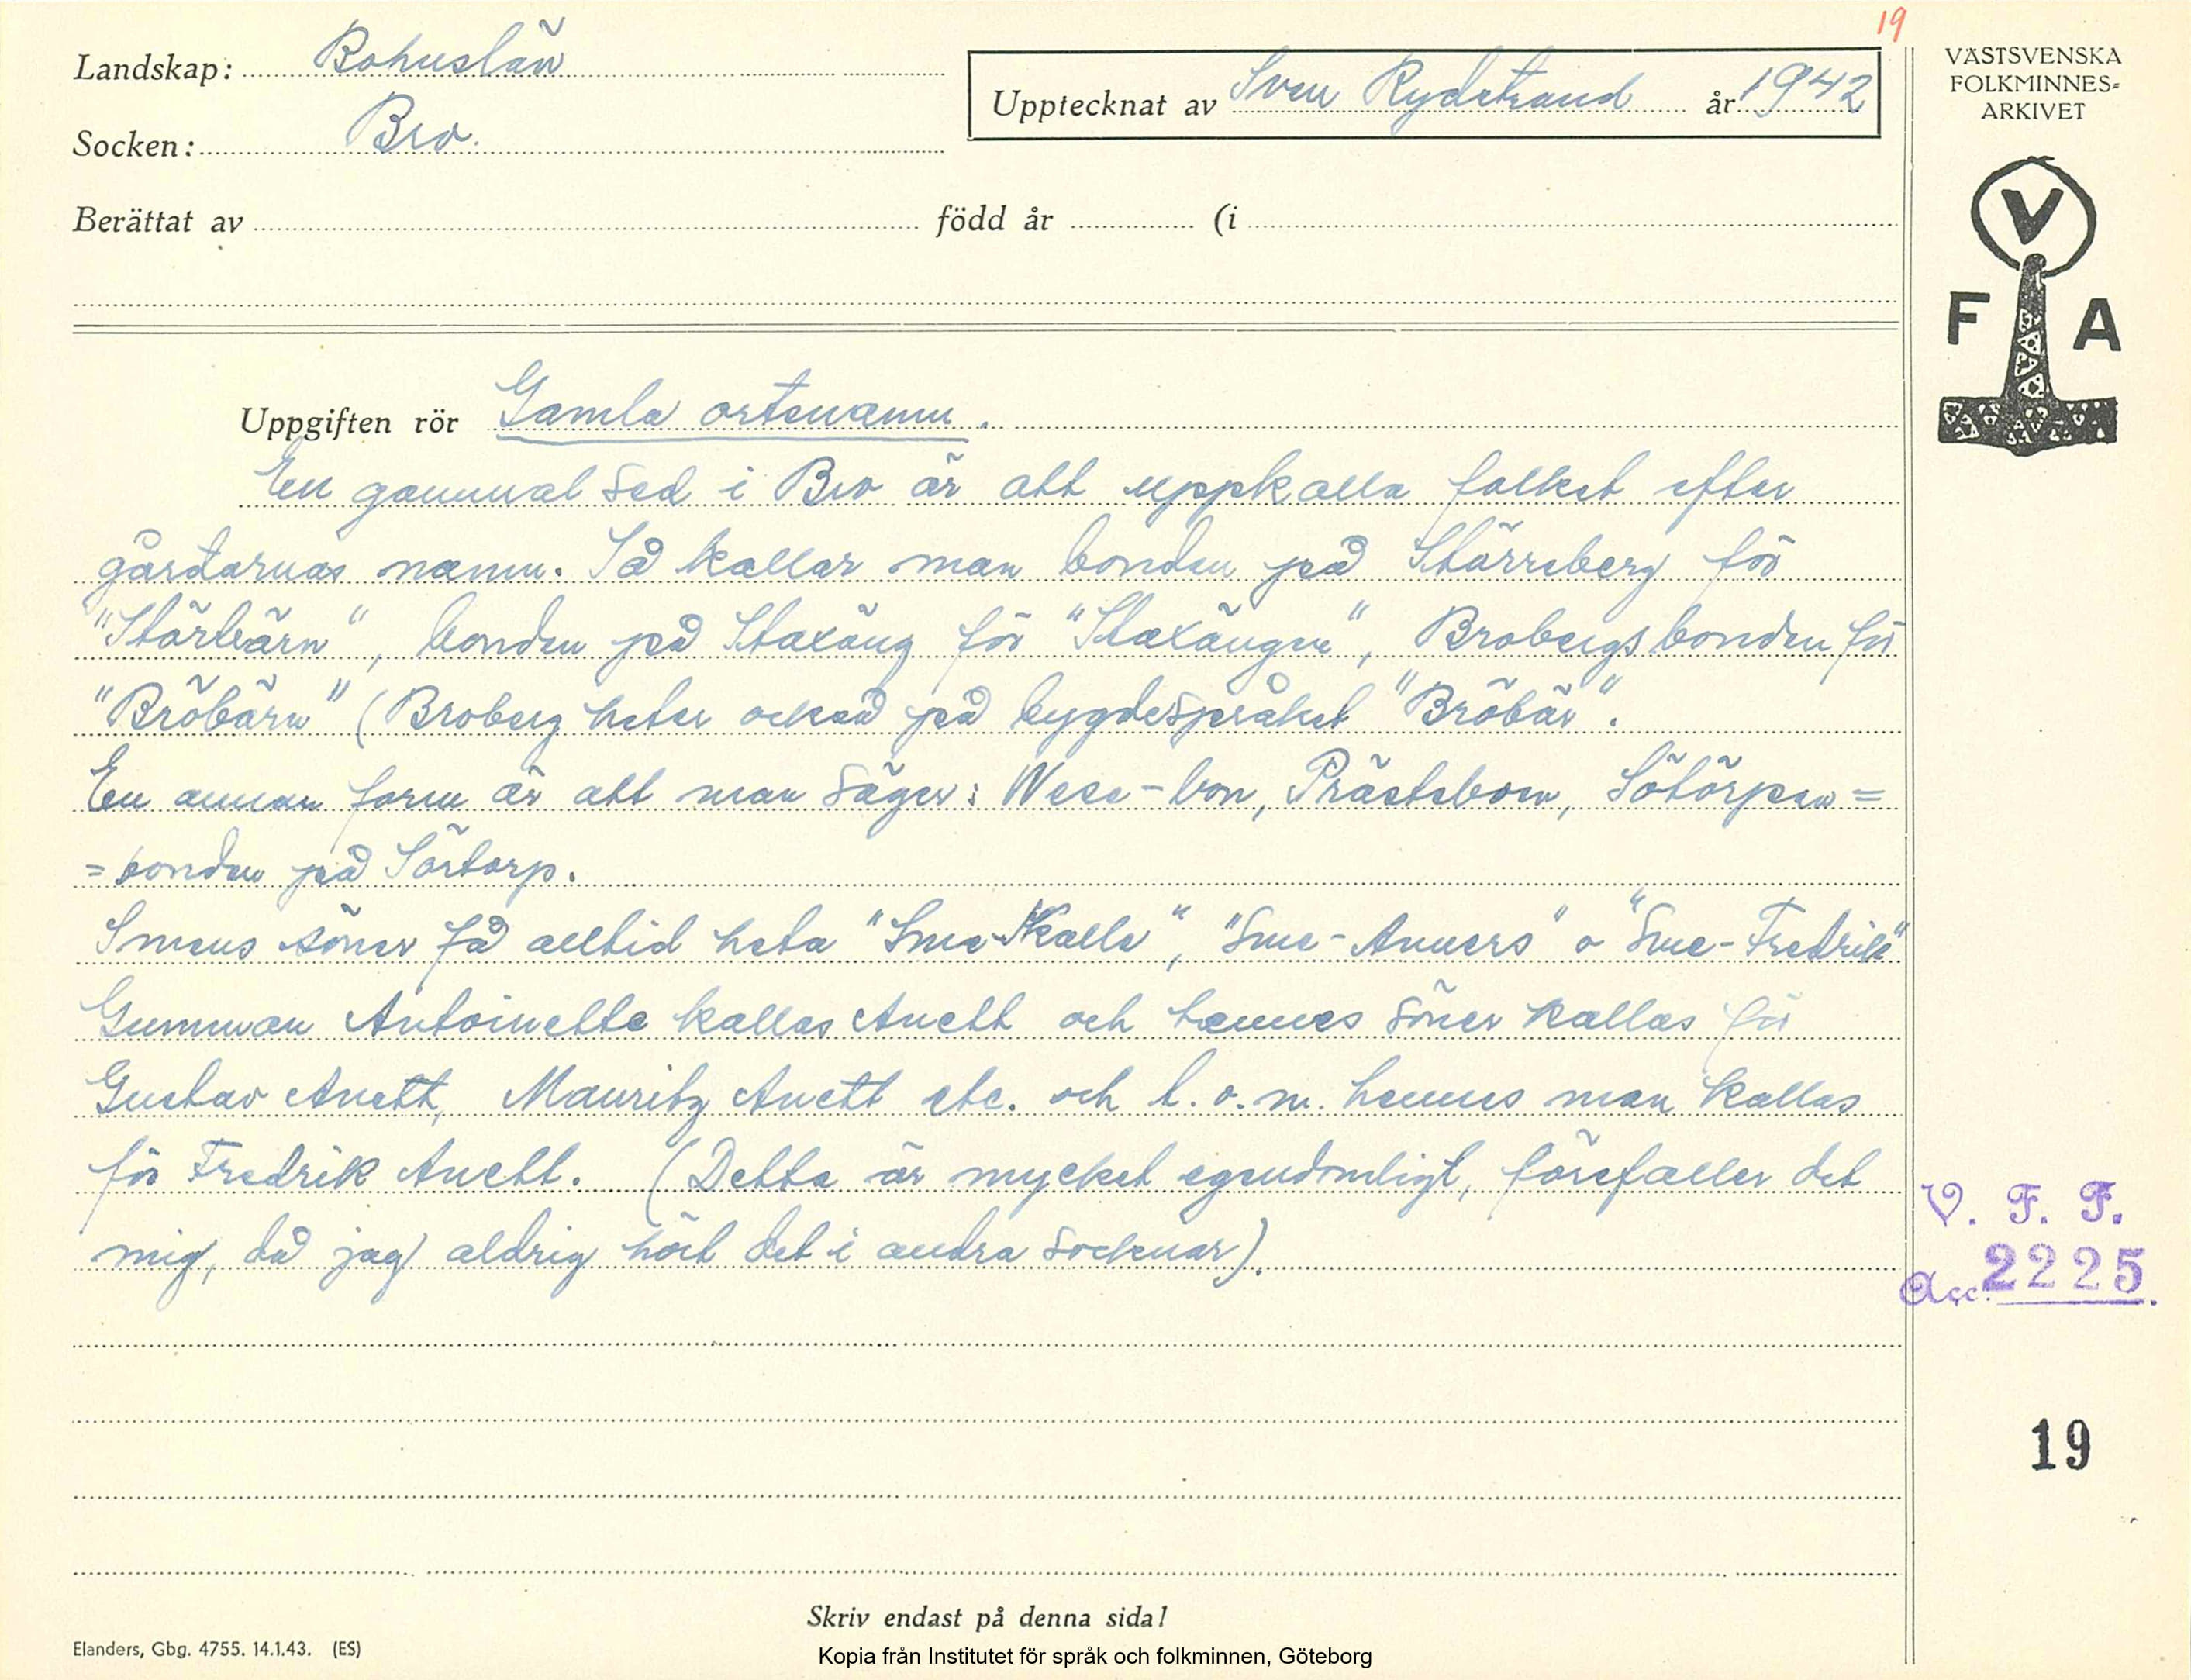 19
Landskap: Bohuslän
Upptecknat av Sven Rydstrand år 1942
Socken: Bro.
Berättat av född år (i
VÄSTSVENSKA
FOLKMINNES=
ARKIVET
V
F A
Uppgiften rör Gamla ortsnamn.
En gammal sed i Bro är att uppkalla folket efter
gårdarnas namn. Så kallar man bonden på Stärreberg för
"Stärbärn", bonden på Staxäng för "Staxängen", Brobergsbonden för
"Bröbärn" (Broberg heter också på bygdespråket "Bröbär".
En annan form är att man säger: Wese-bon, Prästebon, Sötörpen =
= bonden på Sörtorp.
Smens söner få alltid heta "Sme-Kalle", "Sme-Anners" o "Sme-Fredrik"
Gumman Antoinette kallas Anett och hennes söner kallas för
Gustav Anett, Mauritz Anett etc. och t.o.m. hennes man kallas
för Fredrik Anett. (Detta är mycket egendomligt, förefaller det
mig, då jag aldrig hört det i andra socknar).
V. F. F.
Acc. 2225.
19
Skriv endast på denna sida!
Elanders, Gbg. 4755. 14.1.43. (ES)
Kopia från Institutet för språk och folkminnen, Göteborg